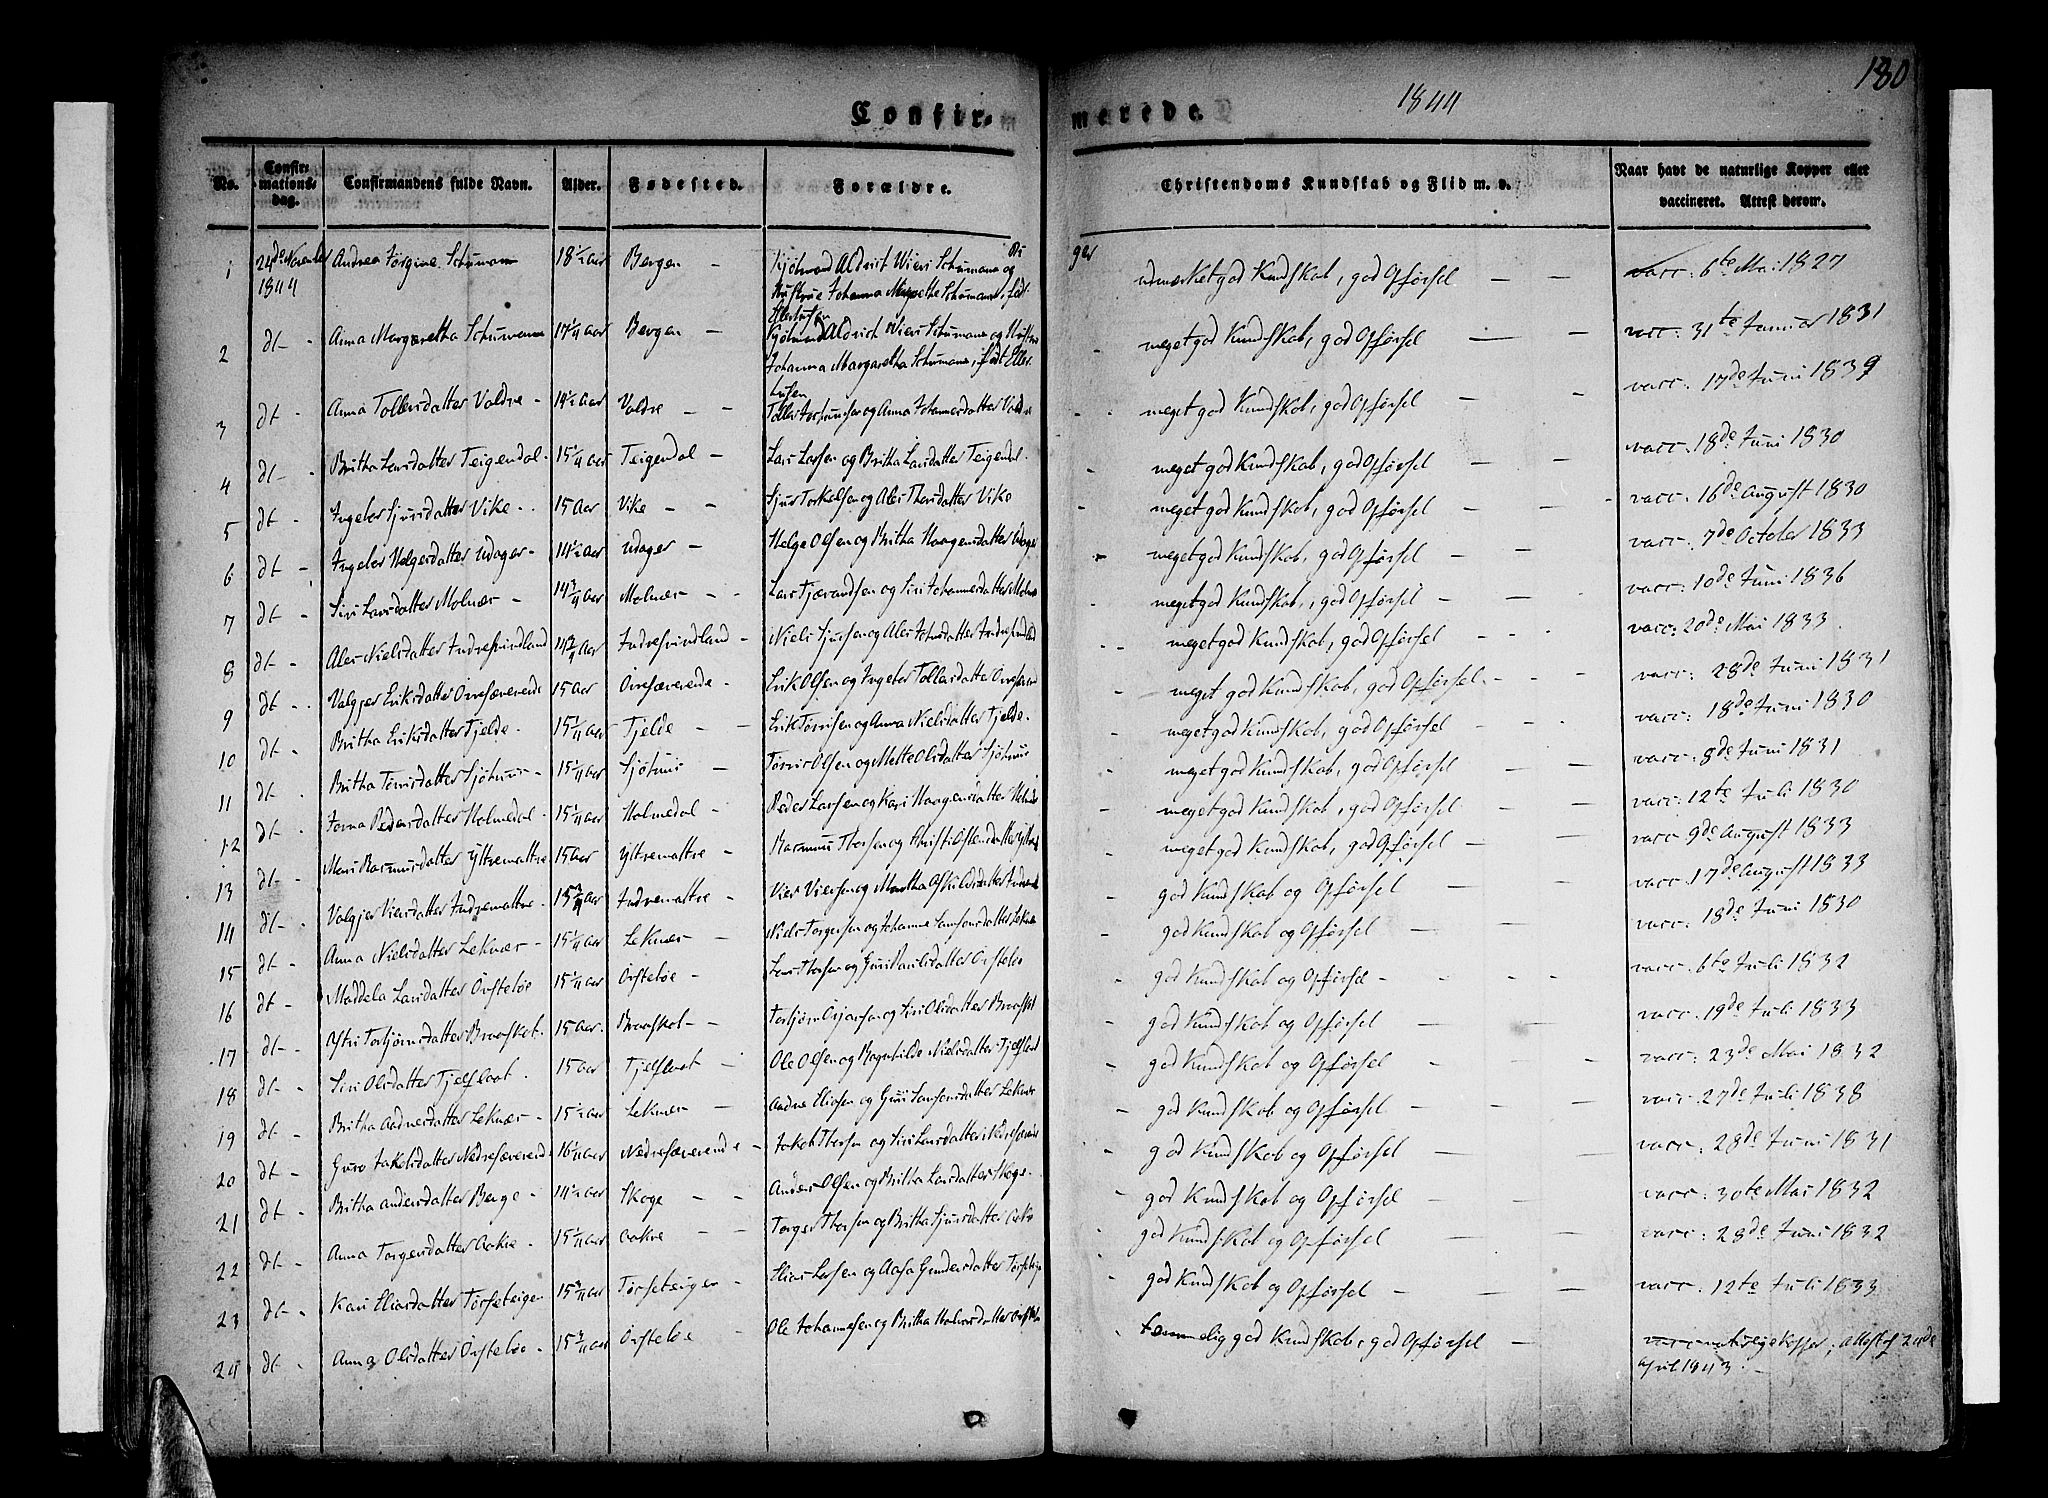 180
1844
Confir- merede.
No. Confirmations- dag. Confirmandens fulde Navn. Alder. Fødested. Forældre. Christendoms Kundskab og Flid m. v. Naar havt de naturlige Kopper eller vaccineret. Attest derom.
1 24de November 1844 Andrea Jørgine Schumann 18½ aar Bergen - Aldrit Wieri Schumann og Hustrue Johanna Schumann, født udmærket god Kundskab, god Opførsel - vacc: 6te Mai 1827
2 dt - Anna Margaretha Schumann aar Bergen - Aldrit Wieri Schumann og Johanna Margaretha Schumann, født meget god Kundskab, god Opførsel - vacc: 31te Januar 1831
3 dt - Anna Tollersdatter Valdre - 14½ aar Valdre - og Anna Johannesdatter Valdre meget god Kundskab, god Opførsel - vacc: 17de Juni 1839
4 dt - Britha Larsdatter Teigendal - 15¼ aar Teigendal - Lars Larsen og Britha Larsdatter Teigendal. meget god Kundskab, god Opførsel - vacc. 18de Juni 1830
5 dt - Ingebr Sjursdatter Vike - 15 aar Vike - Sjur Torkelsen og Ales Thorsdatter Vike meget god Kundskab, god Opførsel - vacc. 16de August 1830
6 dt - Ingebr Helgesdatter Udager - 14½ aar Udager - Helge Olsen og Britha Haagensdatter Udager meget god Kundskab, god Opførsel - vacc. 7de October 1833
7 dt - Siri Larsdatter Molnær - 14¾ aar Molnær - Lars Tjærandsen og Siri Johannesdatter Molnær meget god Kundskab, god Opførsel - vacc: 10de Juni 1836
8 dt - Ales Nielsdatter Indresvindland 14¾ aar Indresvindland - Niels Sjursen og Ales meget god Kundskab, god Opførsel - vacc: 20de Mai 1833.
9 dt - Valgjer Eriksdatter 15 aar Erik Olsen og Ingebr Tollersdatter meget god Kundskab, god Opførsel - vacc: 28de Juni 1831
10 dt - Britha Eriksdatter Tjelde. 15¼ aar Tjelde - Erik Torrisen og Anna Nielsdatter Tjelde. meget god Kundskab, god Opførsel - vacc: 18de Juni 1830
11 dt - Britha Torrisdatter - 15¼ aar Torris Olsen og Mette Olsdatter meget god Kundskab, god Opførsel - vacc: 8de Juni 1831
12 dt - Pedersdatter Holmedal. 15¼ aar Holmedal - Peder Larsen og Kari Haagensdatter meget god Kundskab, god Opførsel - vacc: 12te Juli 1830
13 dt - Mari Rasmusdatter Yttremattre 15 aar Yttremattre - Rasmus Thorsen og meget god Kundskab, god Opførsel - vacc: 9de August 1833
14 dt - Valgjer Viersdatter Indremattre. 15¾ aar Indremattre - Vier Viersen og Martha god Kundskab og Opførsel - vacc: 17de August 1833
15 dt - Anna Nielsdatter Leknær - 15¼ aar Leknær - Niels Torgersen og Johanne Samsonsdatter Leknær god Kundskab og Opførsel - vacc: 18de Juni 1830
16 dt - Maddela Larsdatter Ørsteløe 15¼ aar Ørsteløe - Lars Thorsen og Guri Poulsdatter Ørsteløe god Kundskab og Opførsel - vacc. 6te Juli 1832
17 dt - Torbjørnsdatter Braaskat. 15 aar. Braaskat - og Siri Olsdatter Braaskat god Kundskab og Opførsel - vacc: 19de Juli 1833
18 dt - Siri Olsdatter Tjelflaat. 15 aar Tjelflaat - Ole Olsen og Ragnhilde Nielsdatter Tjelflaat god Kundskab og Opførsel - vacc: 23de Mai 1832
19 dt - Britha Aadnesdatter Leknær - 15½ aar Leknær - Aadne Eliasen og Guri Samsonsdatter Leknær god Kundskab og Opførsel - vacc: 27de Juli 1838
20 dt - Guro Jakobsdatter Nedresæverende 16¼ aar Nedresæverende - Jakob Thorsen og Siri Larsdatter god Kundskab og Opførsel - vacc: 28de Juni 1831
21 dt - Britha Andersdatter Berge - 14½ aar Skoge - Anders Olsen og Britha Larsdatter Skoge. god Kundskab og Opførsel - vacc: 30te Mai 1832
22 dt - Anna Torgersdatter Aakre. 15¼ aar Aakre - Torger Thorsen og Britha Sjursdatter Aakre god Kundskab og Opførsel - vacc: 28de Juni 1832
23 dt - Kari Eliasdatter Torseteigen 15¾ aar Torseteigen - Elias Larsen og Aasa Gundersdatter god Kundskab og Opførsel - vacc: 12te Juli 1833
24 dt - Anna Olsdatter Ørsteløe. 15¾ aar Ørsteløe - Ole Johannesen og Britha Halvorsdatter Ørsteløe temmelig god Kundskab, god Opførsel - naturlige Kopper, attest af April 1843.